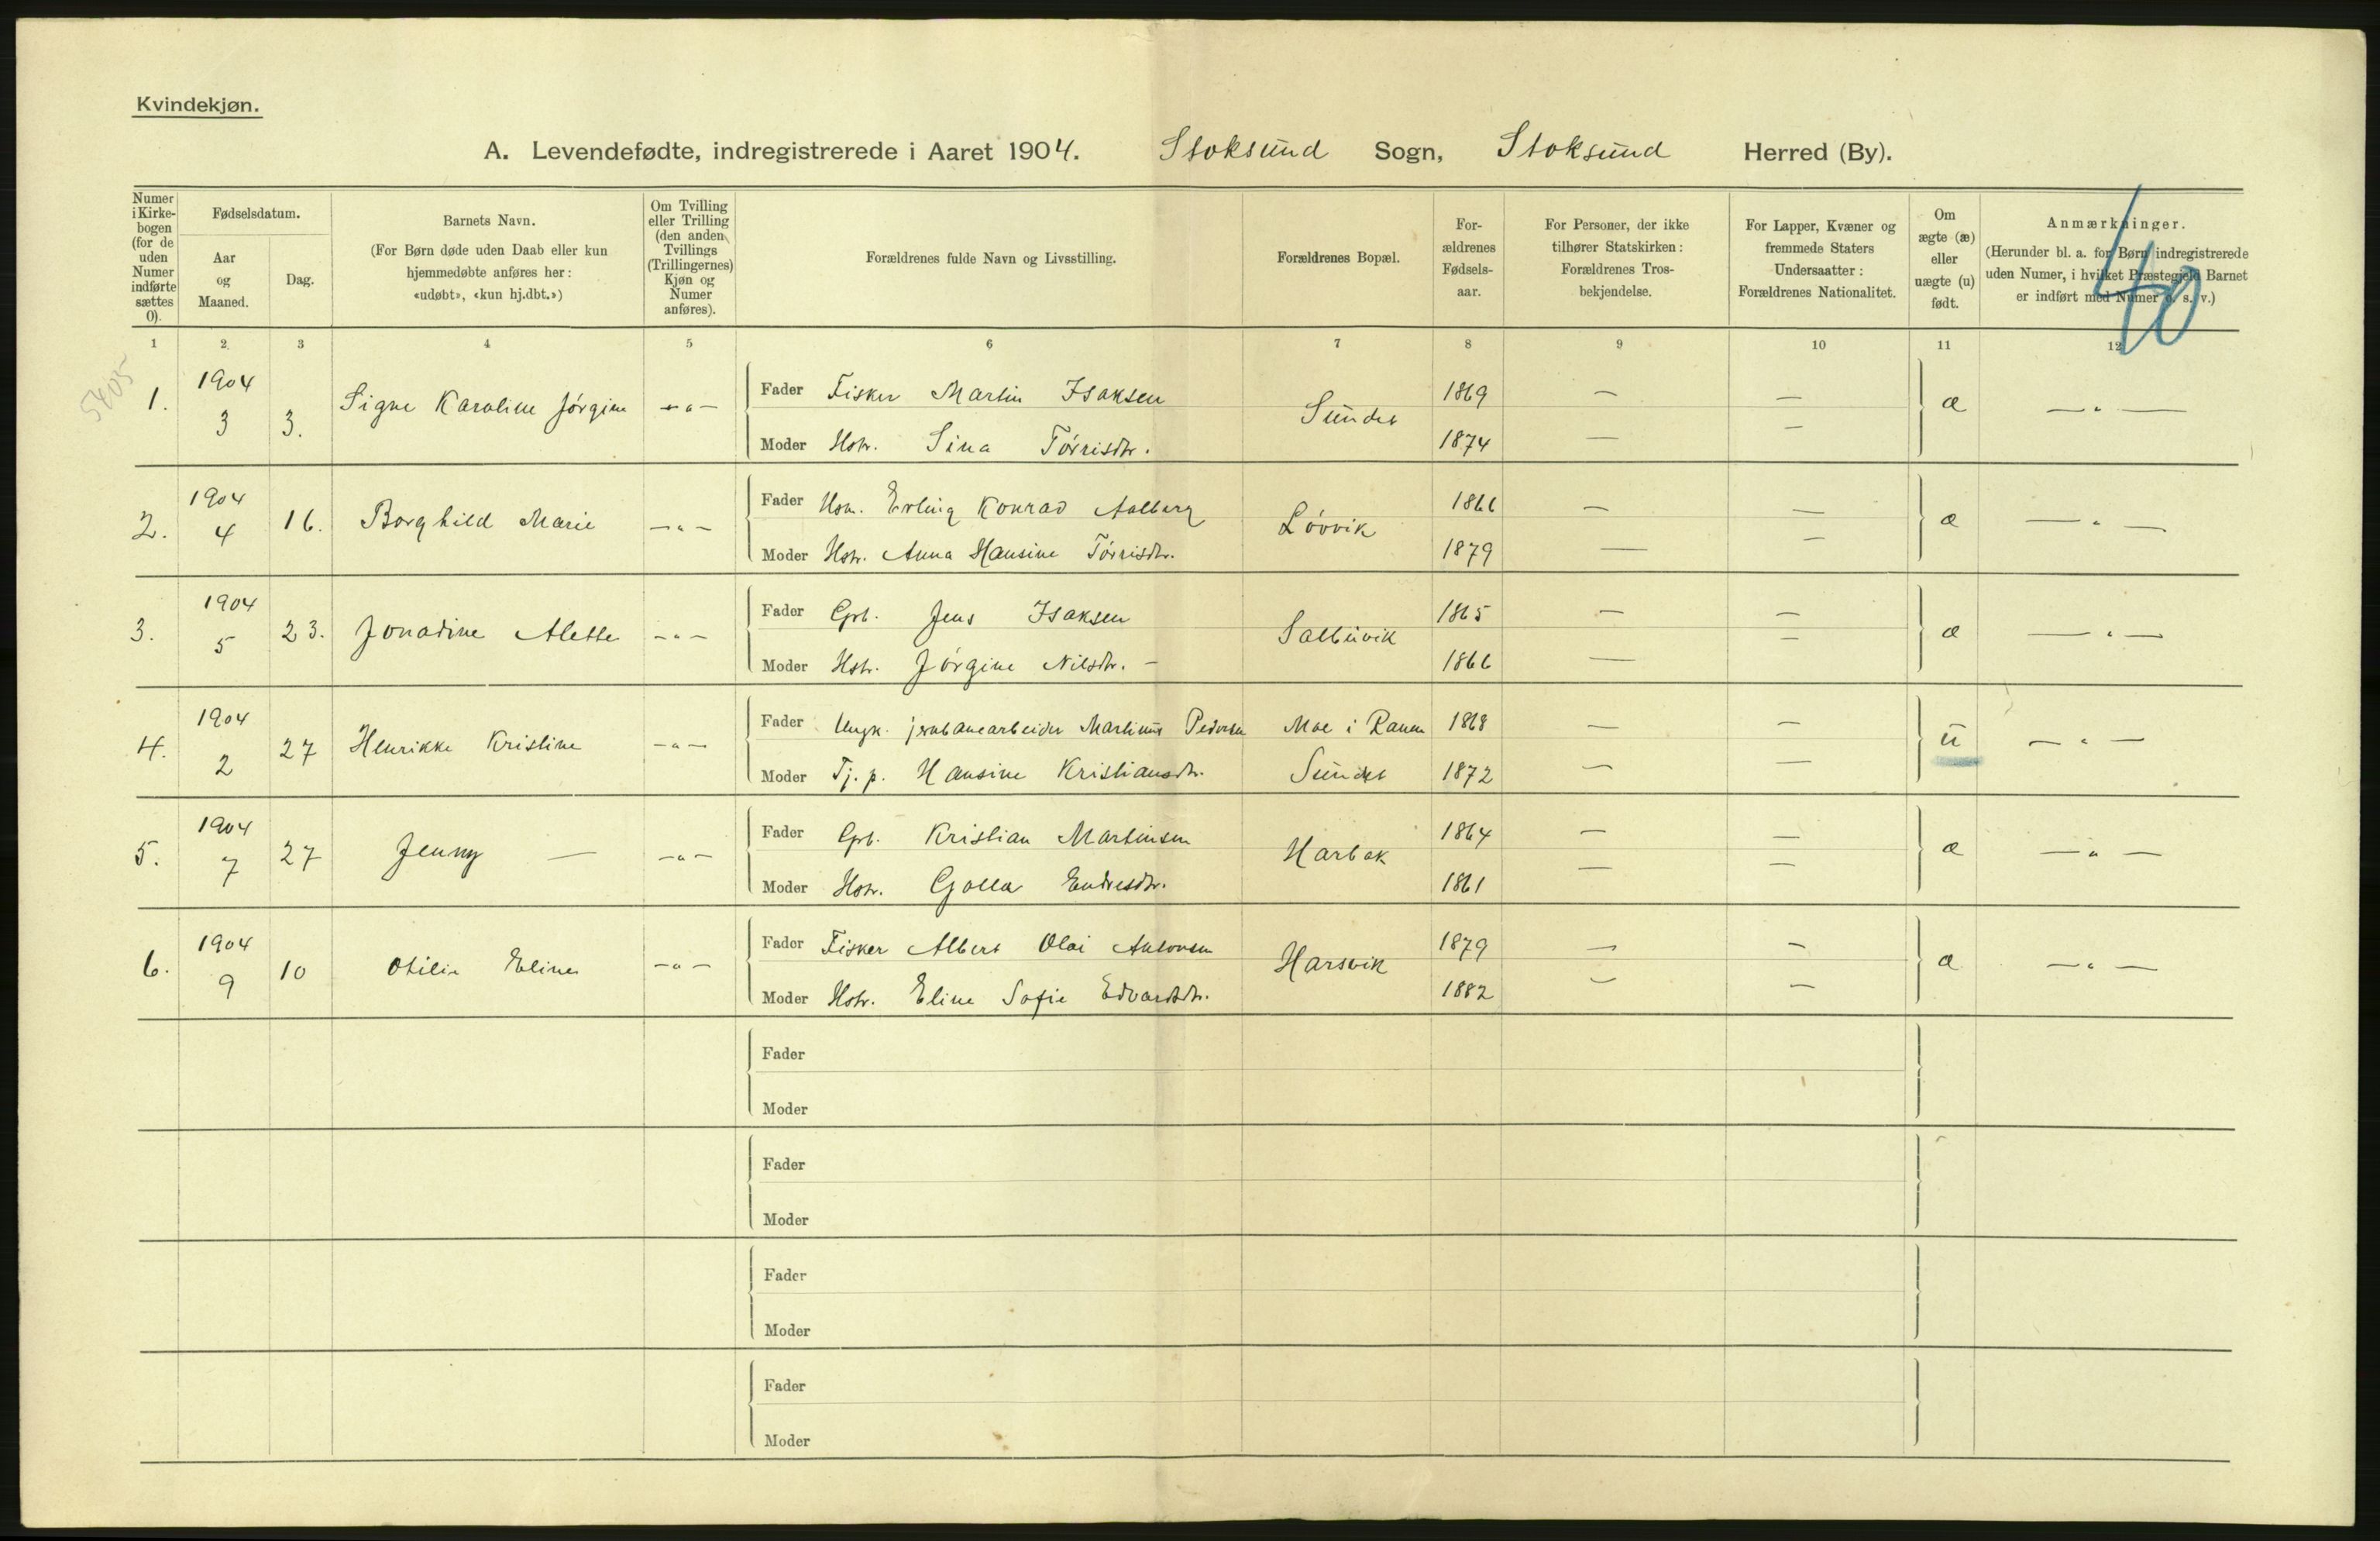 Kvindekjøn.
A. Levendefødte, indregistrerede i Aaret 1904. Stoksund Sogn, Stoksund Herred (By).
Numer i Kirke-bogen (for de uden Numer indførte sættes 0).
Fødselsdatum.
Aar og Maaned.
Dag.
Barnets Navn.
(For Børn døde uden Daab eller kun
hjemmedøbte anføres her:
«udøbt», «kun hj.dbt.»)
Om Tvilling
eller Trilling
(den anden
Tvillings
(Trillingernes)
Kjøn og
Numer
anføres).
Forældrenes fulde Navn og Livsstilling.
Forældrenes Bopæl.
For-
ældrenes
Fødsels-
aar.
For Personer, der ikke
tilhører Statskirken:
Forældrenes Tros-
bekjendelse.
For Lapper, Kvæner og
fremmede Staters
Undersaatter:
Forældrenes Nationalitet.
Om
ægte (æ)
eller
uægte (u)
født.
Anmærkninger.
(Herunder bl. a. for Børn indregistrerede
uden Numer, i hvilket Præstegjeld Barnet
er indført med Numer o. s. v.)
40
1 2. 3 4 5 6 7 8 9 10 11 12
5405
1. 1904 3 3. Signe Karoline Jörgine -"- Fader Fisker Martin Isaksen Sundet 1869 — — æ —"—
Moder Hstr. Sina Törrisdtr. 1874 — —
2. 1904 4 16. Borghild Marie -"- Fader Hsm. Erling Konrad Aalberg Lövvik 1866 — — æ —"—
Moder Hstr. Anna Hansine Törrisdtr. 1879 — —
3. 1904 5 23. Jonadine Alette -"- Fader Grb. Jens Isaksen Salbuvik 1865 — — æ —"—
Moder Hstr. Jörgine Nilsdtr. - 1866 — —
4. 1904 2 27 Henrikke Kristine -"- Fader Ungk. jernbanearbeider Martinus Pedersen Moe i Ranen 1868 — — u —"—
Moder Tj. p. Hansine Kristiansdtr. Sundet 1872 — —
5. 1904 7 27 Jenny — -"- Fader Grb. Kristian Martinsen Harbak 1864 — — æ —"—
Moder Hstr. Golla Endresdtr. 1861 — —
6. 1904 9 10 Otilie Eline -"- Fader Fisker Albert Olai Antonsen Harsvik 1879 — — æ —"—
Moder Hstr. Eline Sofie Edvardsdtr. 1882 — —
Fader
Moder
Fader
Moder
Fader
Moder
Fader
Moder